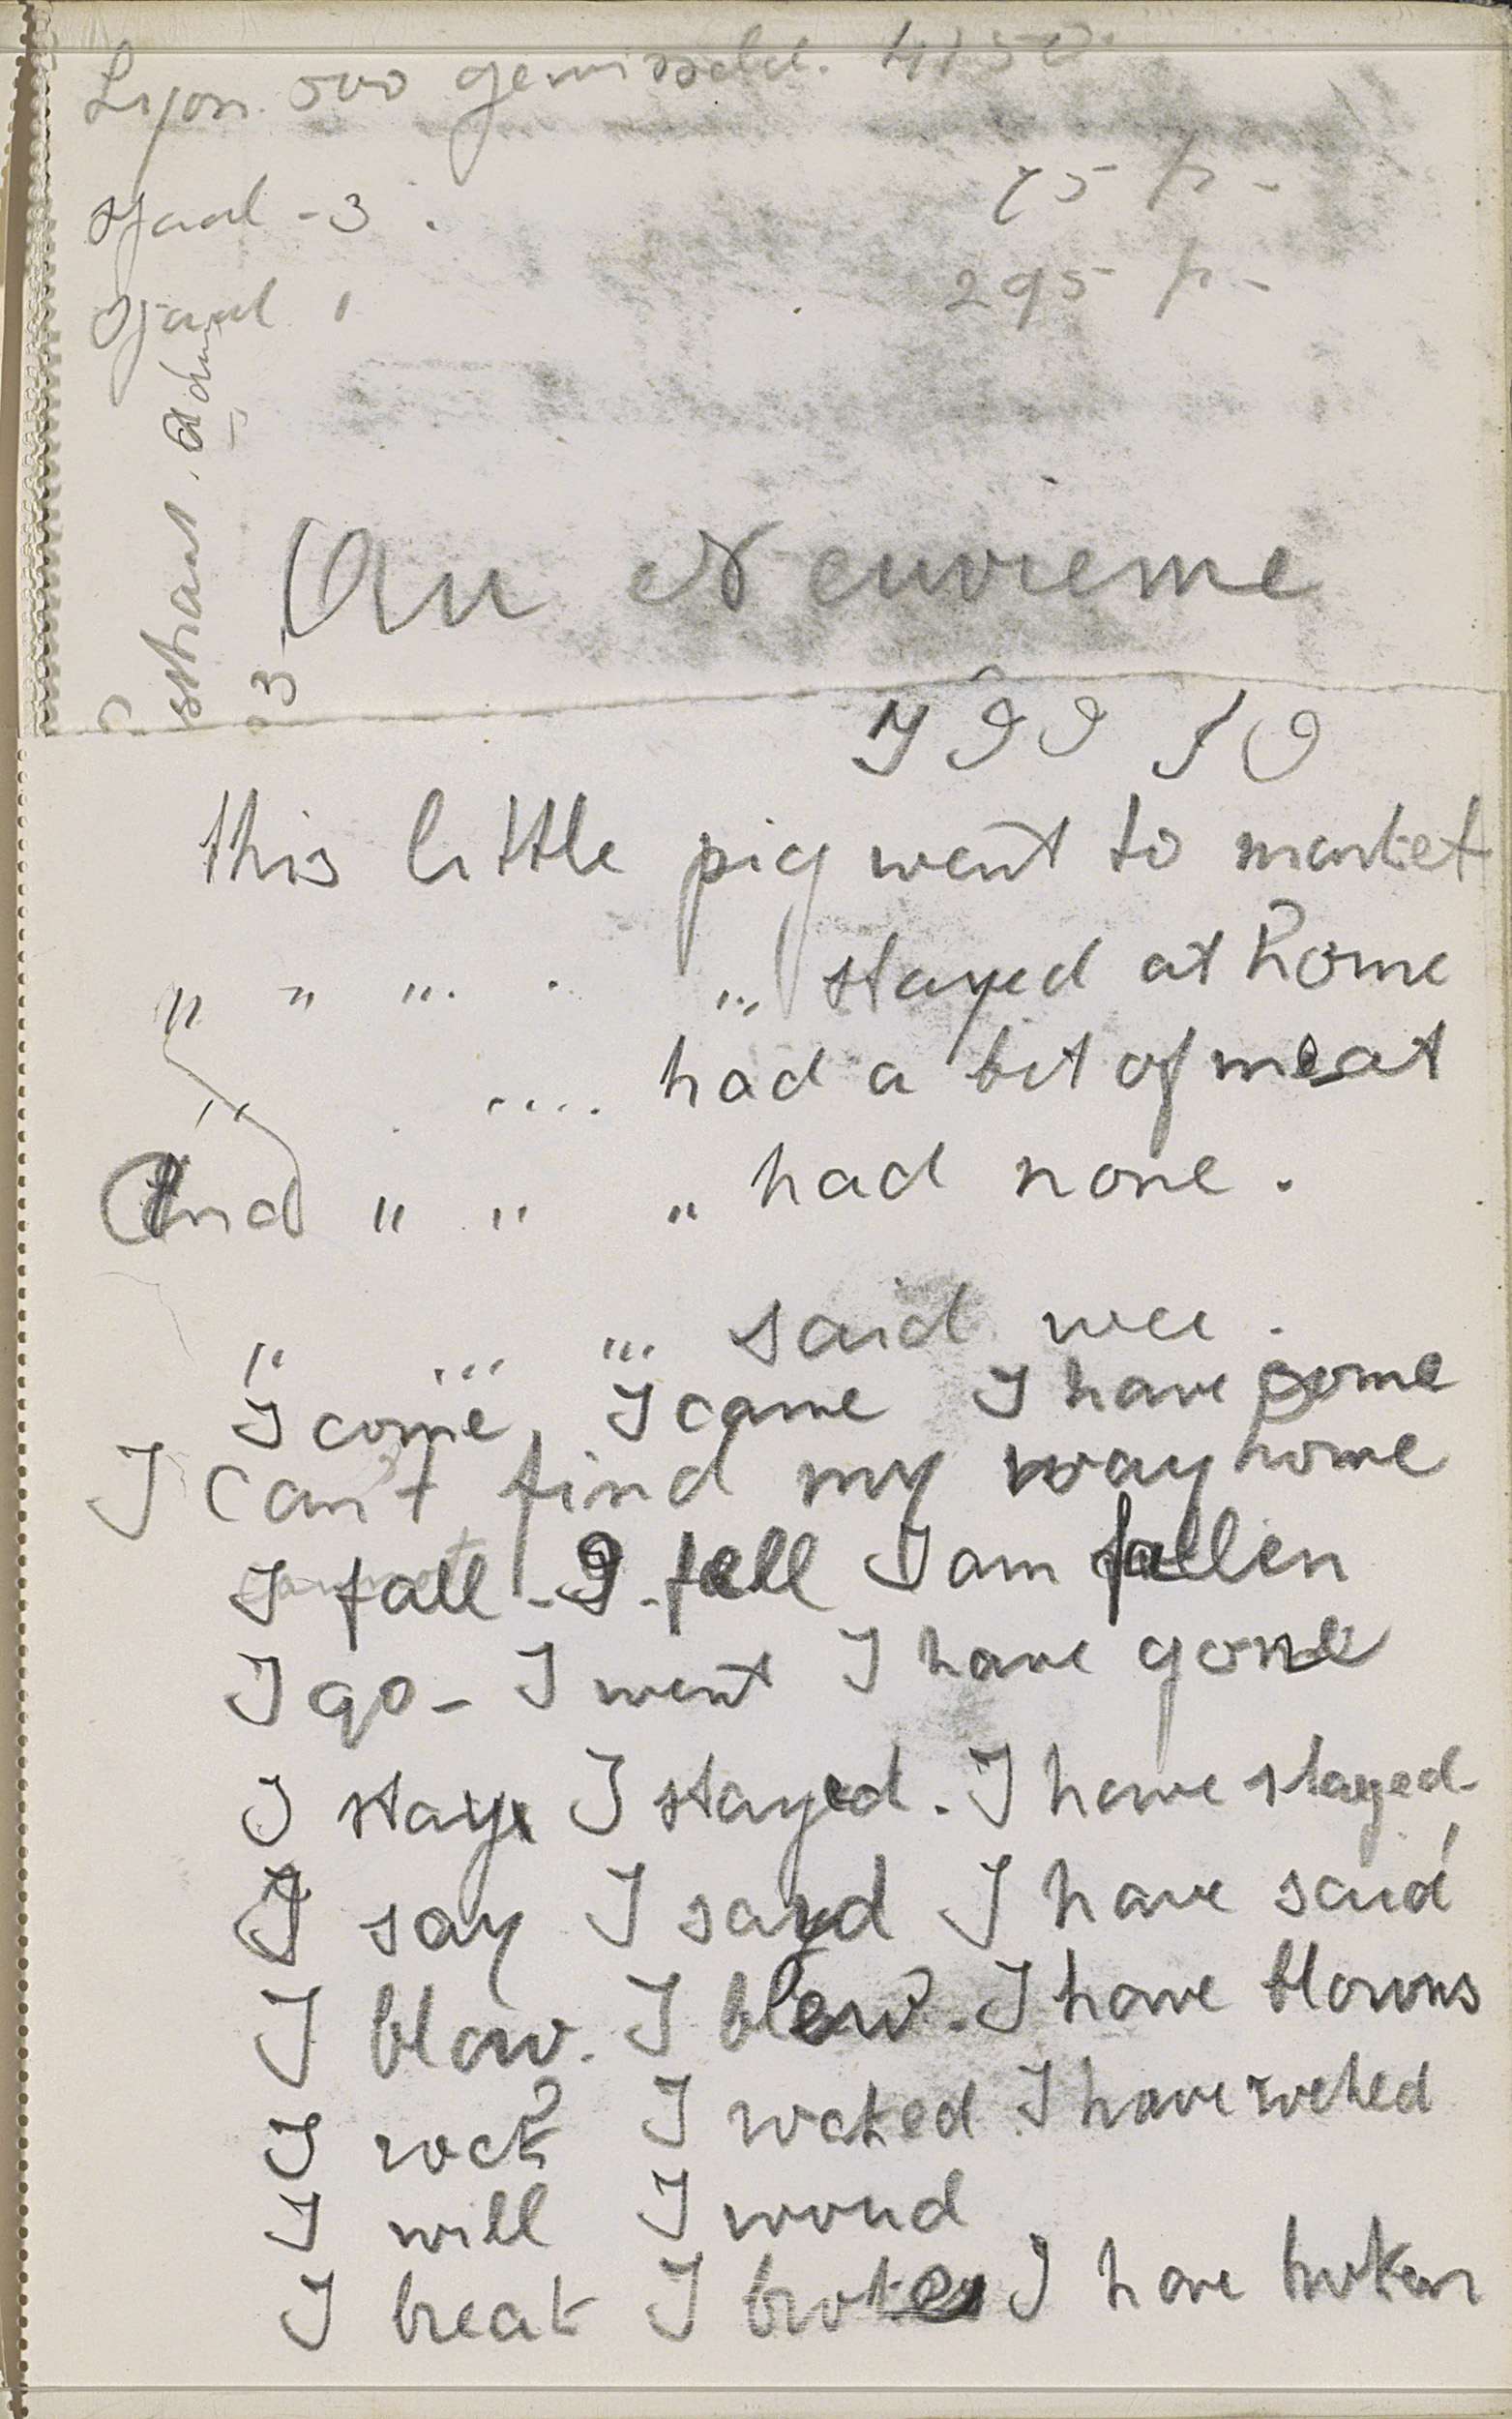 Lyon 500 gewisseld. 4150.
sjaal - 3. 75 fr -
sjaal 1 295 fr -
straat
3
Au Neuvieme
this little pig went to market
" " " " stayed at home
" .... had a bit of meat
And " " " had none.
" " " said wee.
I come, I came I have come
I can't find my way home
I fall - I fell I am fallen
I go - I went I have gone
I stay I stayed. I have stayed
I say I said I have said
I blow. I blew. I have blowns
I rock I rocked I have rocked
I will I woud
I break I broke I have broken